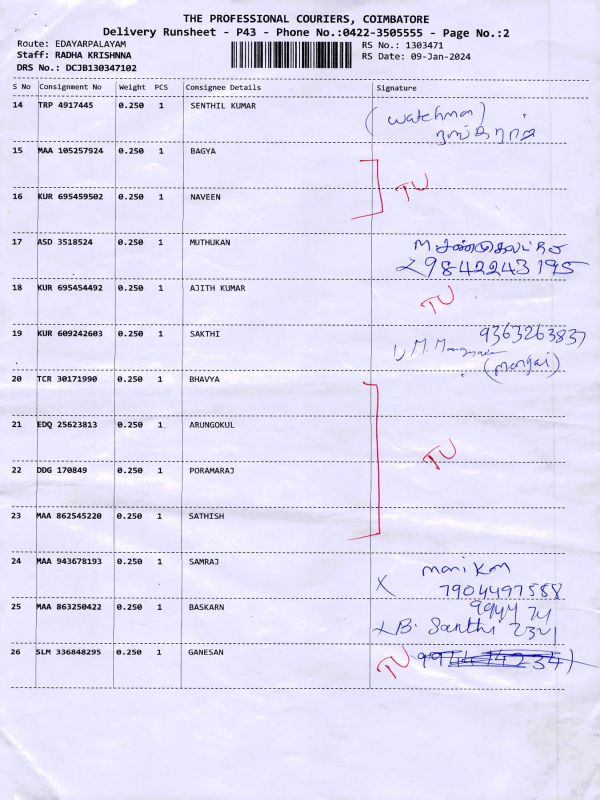 THE PROFESSIONAL COURIERS, COIMBATORE
Delivery Runsheet - P43 - Phone No.:0422-3505555 - Page No.:2
Route: EDAYARPALAYAM RS No.: 1303471
Staff: RADHA KRISHNNA RS Date: 09-Jan-2024
DRS No.: DCJB130347102
S No Consignment No Weight PCS Consignee Details Signature
14 TRP 4917445 0.250 1 SENTHIL KUMAR (Watchman)
15 MAA 105257924 0.250 1 BAGYA
TU
16 KUR 695459502 0.250 1 NAVEEN
17 ASD 3518524 0.250 1 MUTHUKAN
9842243195
18 KUR 695454492 0.250 1 AJITH KUMAR TU
19 KUR 609242603 0.250 1 SAKTHI 9363263837
M. (mangai)
20 TCR 30171990 0.250 1 BHAVYA
21 EDQ 25623813 0.250 1 ARUNGOKUL
TU
22 DDG 170849 0.250 1 PORAMARAJ
23 MAA 862545220 0.250 1 SATHISH
24 MAA 943678193 0.250 1 SAMRAJ
X 7904497588
25 MAA 863250422 0.250 1 BASKARN 9944 74
X B. Santhi 2321
26 SLM 336848295 0.250 1 GANESAN TU